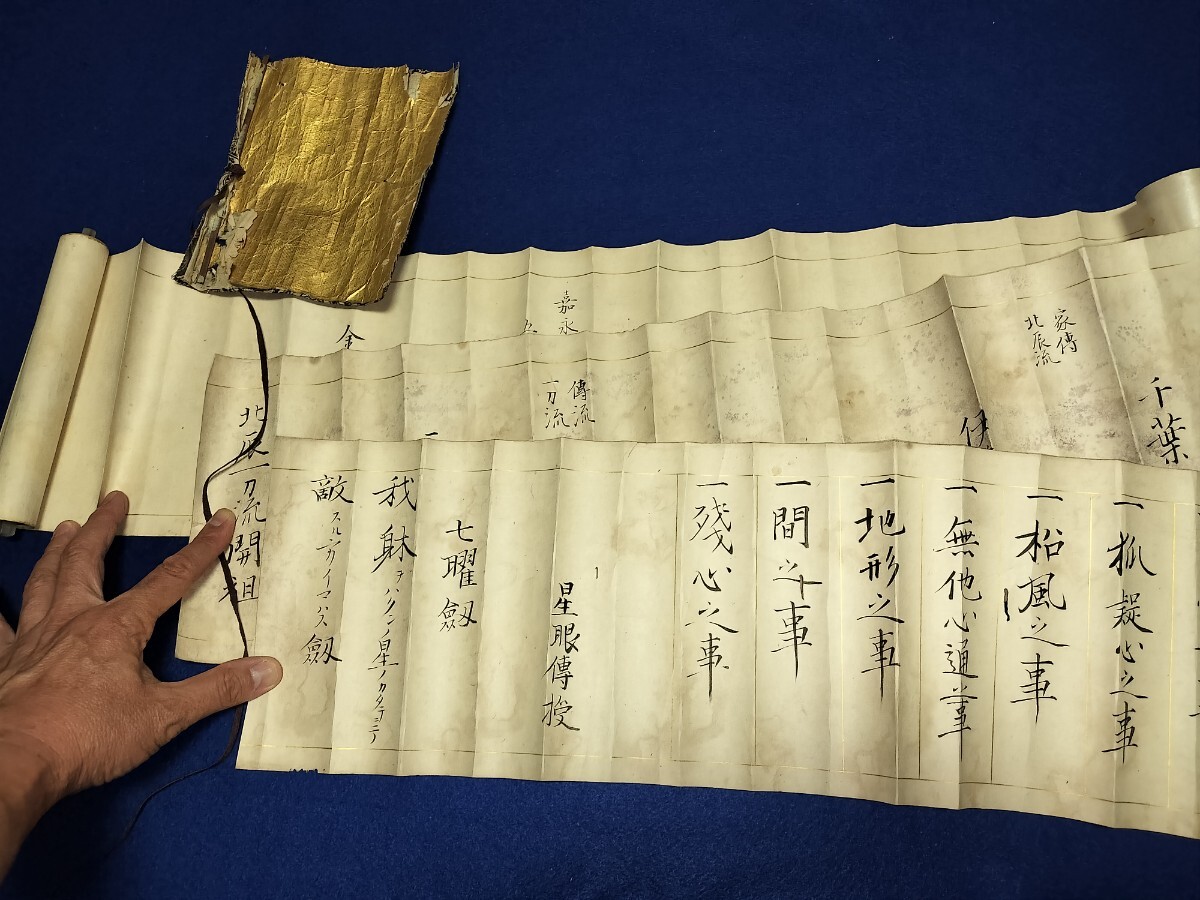 一狐疑心之事
一松風之事
一無他心通葷
一地形之事
一間之事
一残心之事
星眼傳授
七曜劔
我躰ヲハクンノ星ノカタチニテ
敵スルカイマハス劔
千葉
家傳
北辰流
傳流
一刀流
北辰一刀流開祖
嘉永
金